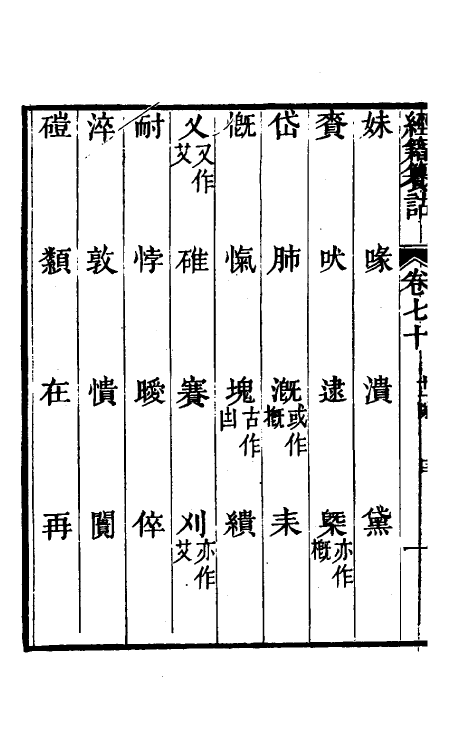 經籍籑詁 卷七十
妹 喙 潰 黛
賚 吠 逮 槩亦作概
岱 肺 漑或作概 耒
慨 愾 塊古作凷 繢
乂又作艾 碓 賽 刈亦作艾
耐 悖 曖 倅
淬 敦 憒 闠
磑 纇 在 再